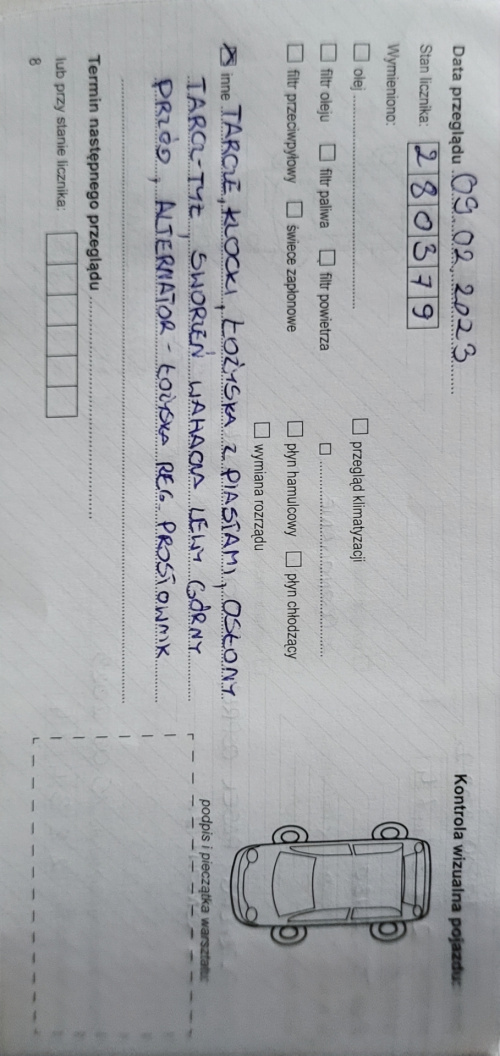 Data przeglądu 09.02.2023
Kontrola wizualna pojazdu:
Stan licznika: 280379
Wymieniono:
olej
przegląd klimatyzacji
filtr oleju filtr paliwa filtr powietrza
filtr przeciwpyłowy świece zapłonowe
płyn hamulcowy płyn chłodzący
wymiana rozrządu
inne TARCZE, KLOCKI, ŁOŻYSKA Z PIASTAMI, OSŁONY
TARCZ-TYŁ, SWORZEŃ WAHACZA LEWY GÓRNY
PRZÓD, ALTERNATOR - ŁOŻYSKA REG. PROSTOWNIK
podpis i pieczątka warsztatu:
Termin następnego przeglądu
lub przy stanie licznika:
8